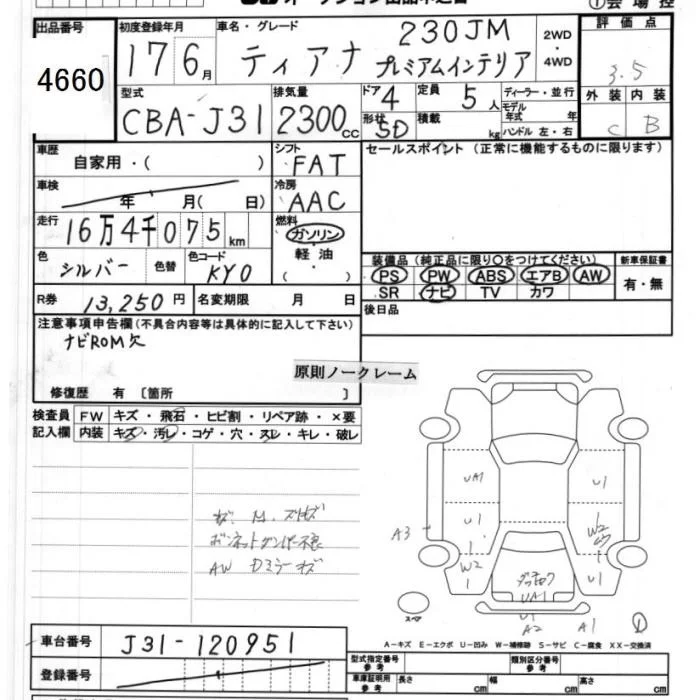 ①会場控
出品番号
4660
初度登録年月
17 6月
車名・グレード
ティアナ
230JM
プレミアムインテリア
2WD
・
4WD
評価点
3.5
外装 内装
C B
型式
CBA-J31
排気量
2300cc
ドア 4
形状 SD
定員 5人
積載 kg
ディーラー・並行
モデル年式 年式
ハンドル 左・右
車歴
自家用・( )
シフト
FAT
セールスポイント(正常に機能するものに限ります)
車検
年 月( 日)
冷房
AAC
走行
16万4千075km
燃料
ガソリン
軽油
( )
色
シルバー
色替
色コード
KY0
装備品(純正品に限り○をつけてください)
PS PW ABS エアB AW
SR ナビ TV カワ
新車保証書
有・無
R券
13,250円
名変期限 月 日
後日品
注意事項申告欄(不具合内容等は具体的に記入して下さい)
ナビROM欠
原則ノークレーム
修復歴 有 〔箇所 〕
検査員
記入欄
FW キズ・飛石・ヒビ割・リペア跡・×要
内装 キズ・汚レ・コゲ・穴・スレ・キレ・破レ
AW Dミラーキズ
UA1
U1
U1
U1
W2
A3
W2
U1
UA1
U1
A2
A1
スペア
①
A-キズ E-エクボ U-凹み W-補修跡 S-サビ C-腐食 XX-交換済
車台番号
J31-120951
登録番号
型式指定番号
参考
類別区分番号
参考
車庫証明用
参考
長さ cm
幅 cm
高さ cm